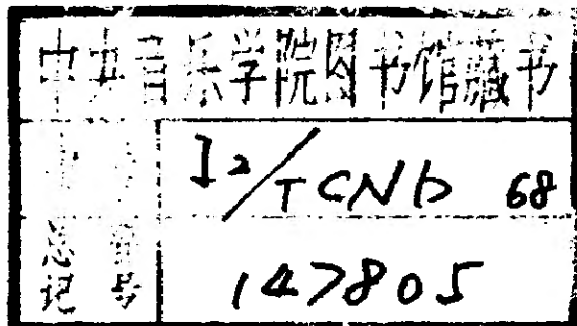 中央音乐学院图书馆藏书
书号 I2/TCND 68
总登记号 147805